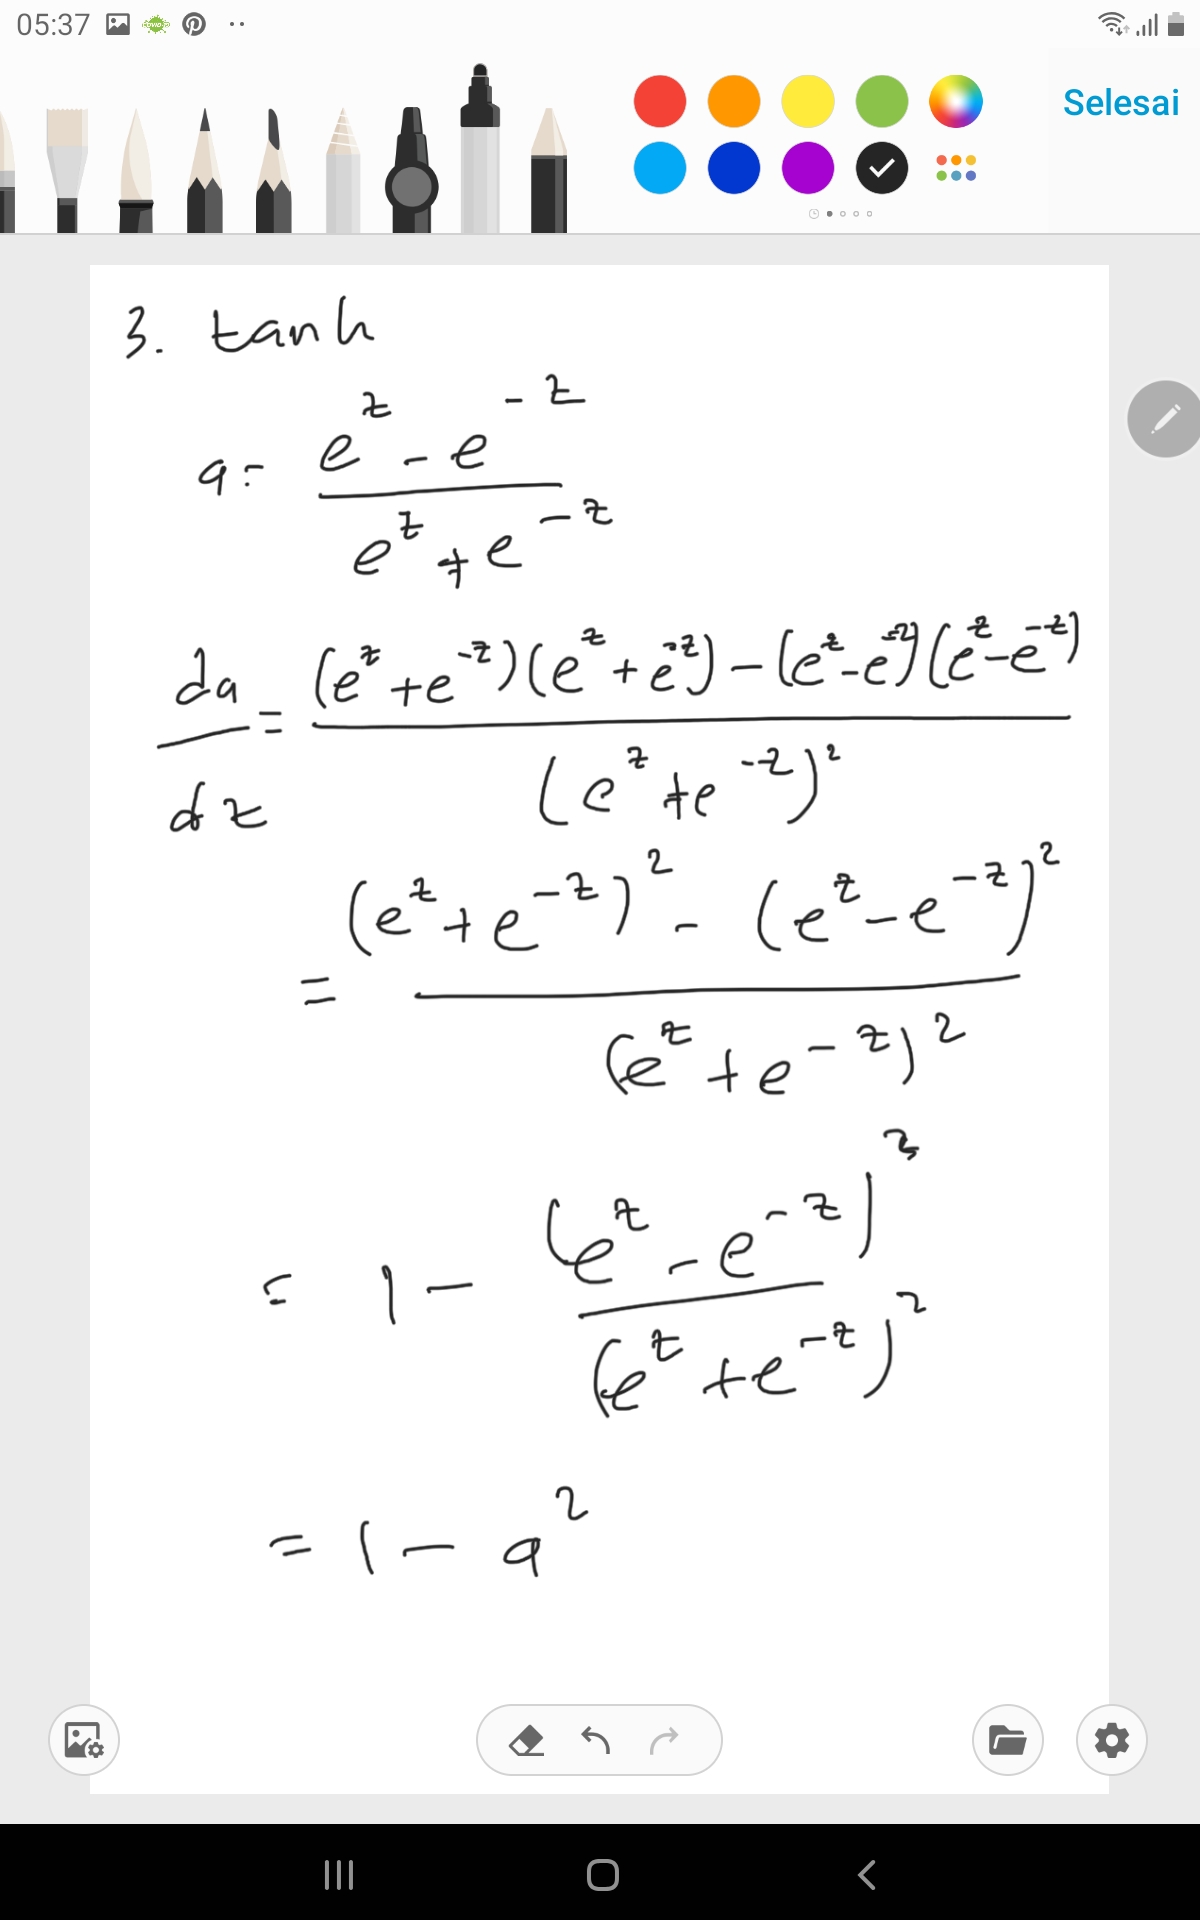 05:37
Selesai
3. tanh
a = (e^z - e^-z) / (e^z + e^-z)
da/dz = ((e^z + e^-z)(e^z + e^-z) - (e^z - e^-z)(e^z - e^-z)) / (e^z + e^-z)^2
= ((e^z + e^-z)^2 - (e^z - e^-z)^2) / (e^z + e^-z)^2
= 1 - (e^z - e^-z)^2 / (e^z + e^-z)^2
= 1 - a^2